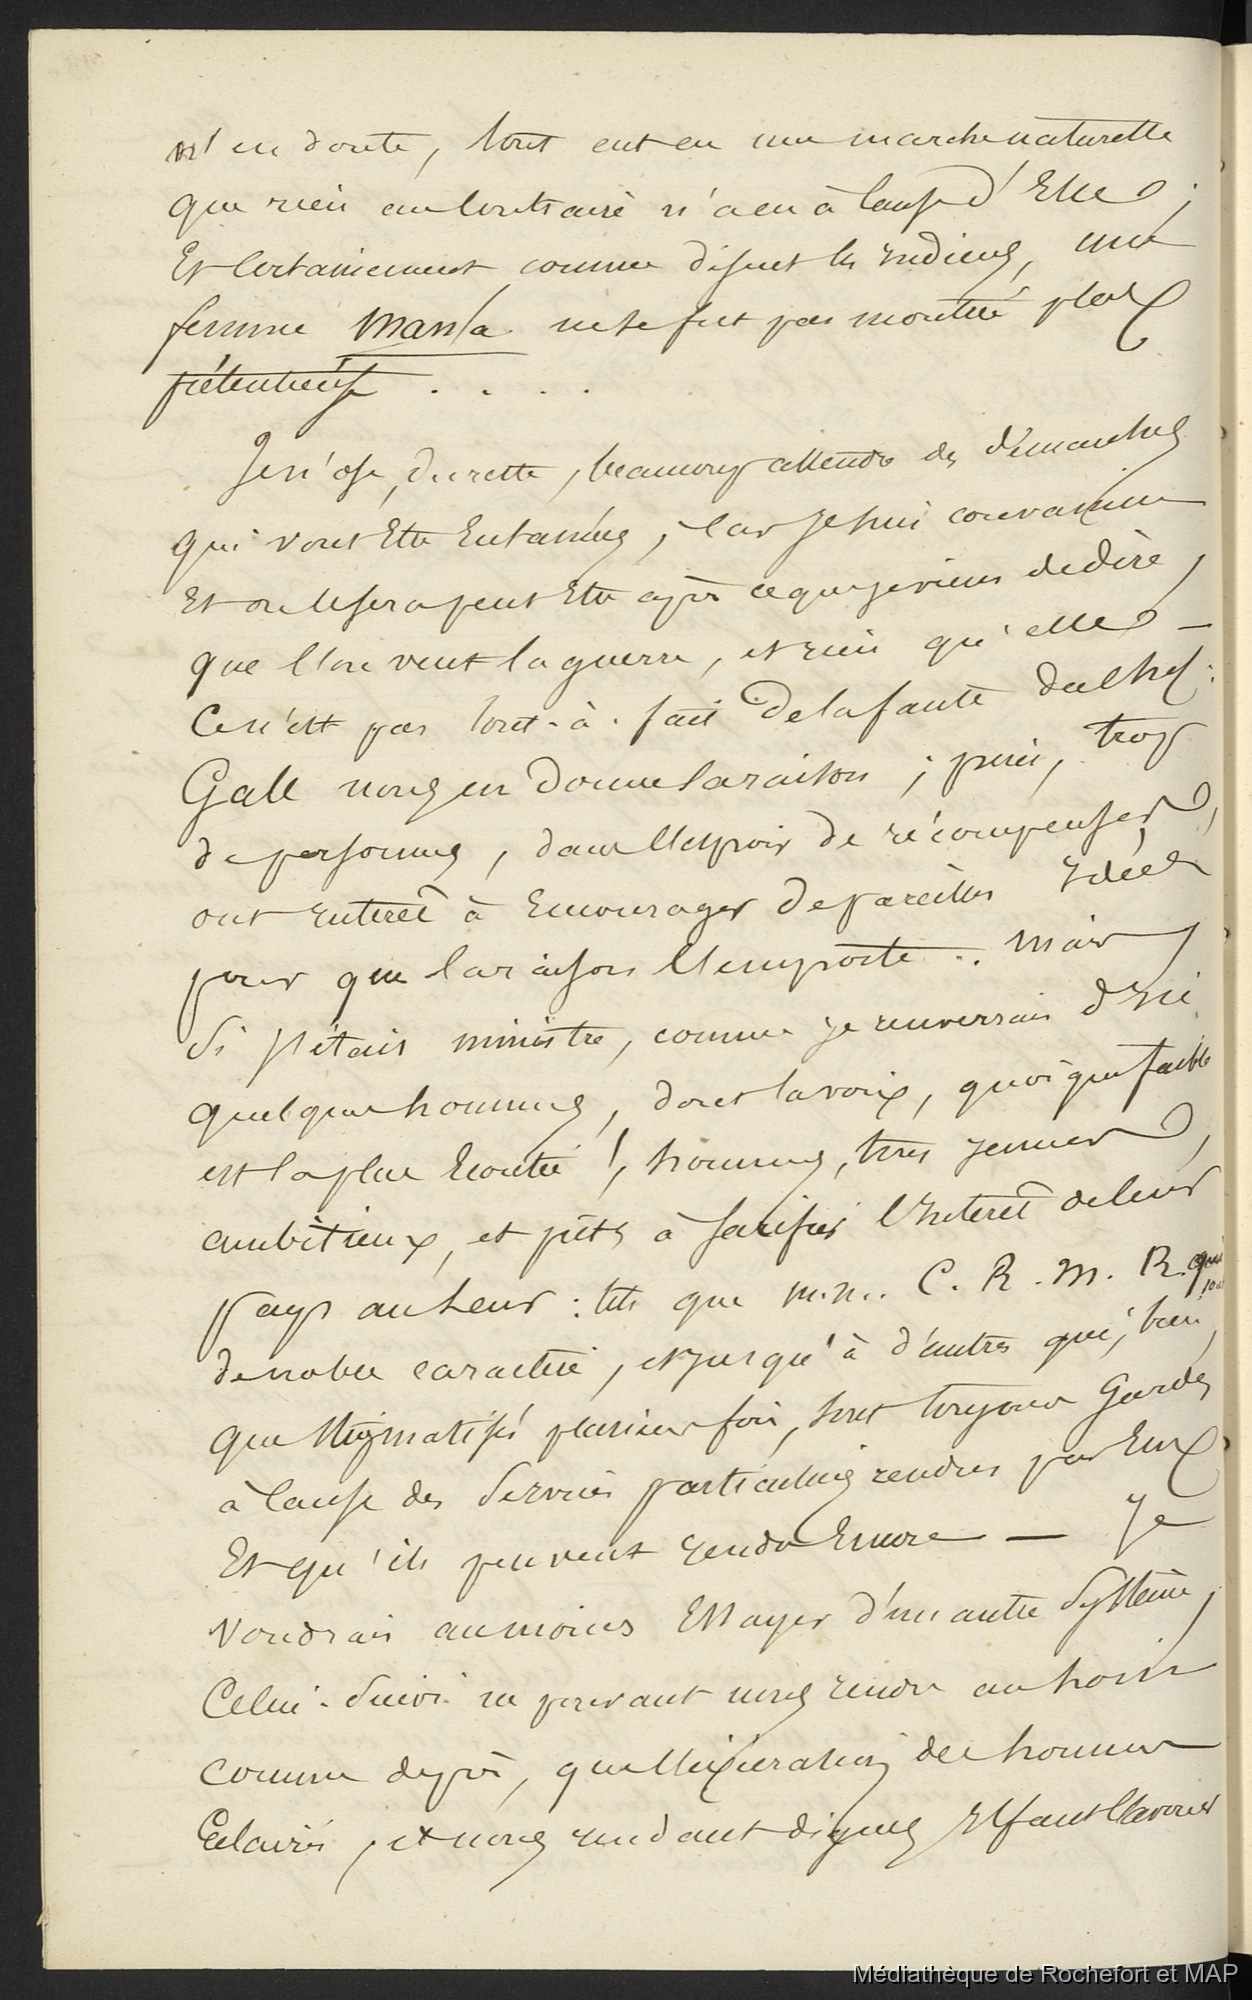 n'en doute, tout eut eu une marche naturelle
que rien au contraire n'a eu à cause d'Elle ;
Et certainement comme disent les indiens, une
femme mansa ne se fut pas montrée plus
prétentieuse . . . .
Je n'ose, du reste, beaucoup attendre des démarches
qui vont Etre Entamées, car je suis convaincu
Et on le sera peut Etre après ce que je viens de dire,
que l'on veut la guerre, et rien qu'elle —
Ce n'est pas tout-à-fait de la faute du chef :
Gall nous en donne la raison ; puis, trop
de personnes, dans l'espoir de récompenses,
ont interêt à Encourager de pareilles idées
pour que la raison l'emporte .. mais
si j'étais ministre, comme je renverrais d'ici
quelques hommes, dont la voix, quoique faible
est la plus Ecoutée !, hommes, tous jeunes,
ambitieux, et prêts à sacrifier l'interêt de leur
pays au leur : tels que m.m. C. R. M. R. qui
de noble caractère, et jusqu'à d'autres qui, bien
que stigmatisés plusieurs fois, sont toujours gardés
à cause des services particuliers rendus par Eux
Et qu'ils peuvent rendre Encore — Je
voudrais au moins Essayer d'un autre système,
Celui-suivi ne pouvant nous rendre au loin
comme de près, que l'exécration des hommes
Eclairés, et nous rendant dignes il faut l'avouer
Médiathèque de Rochefort et MAP